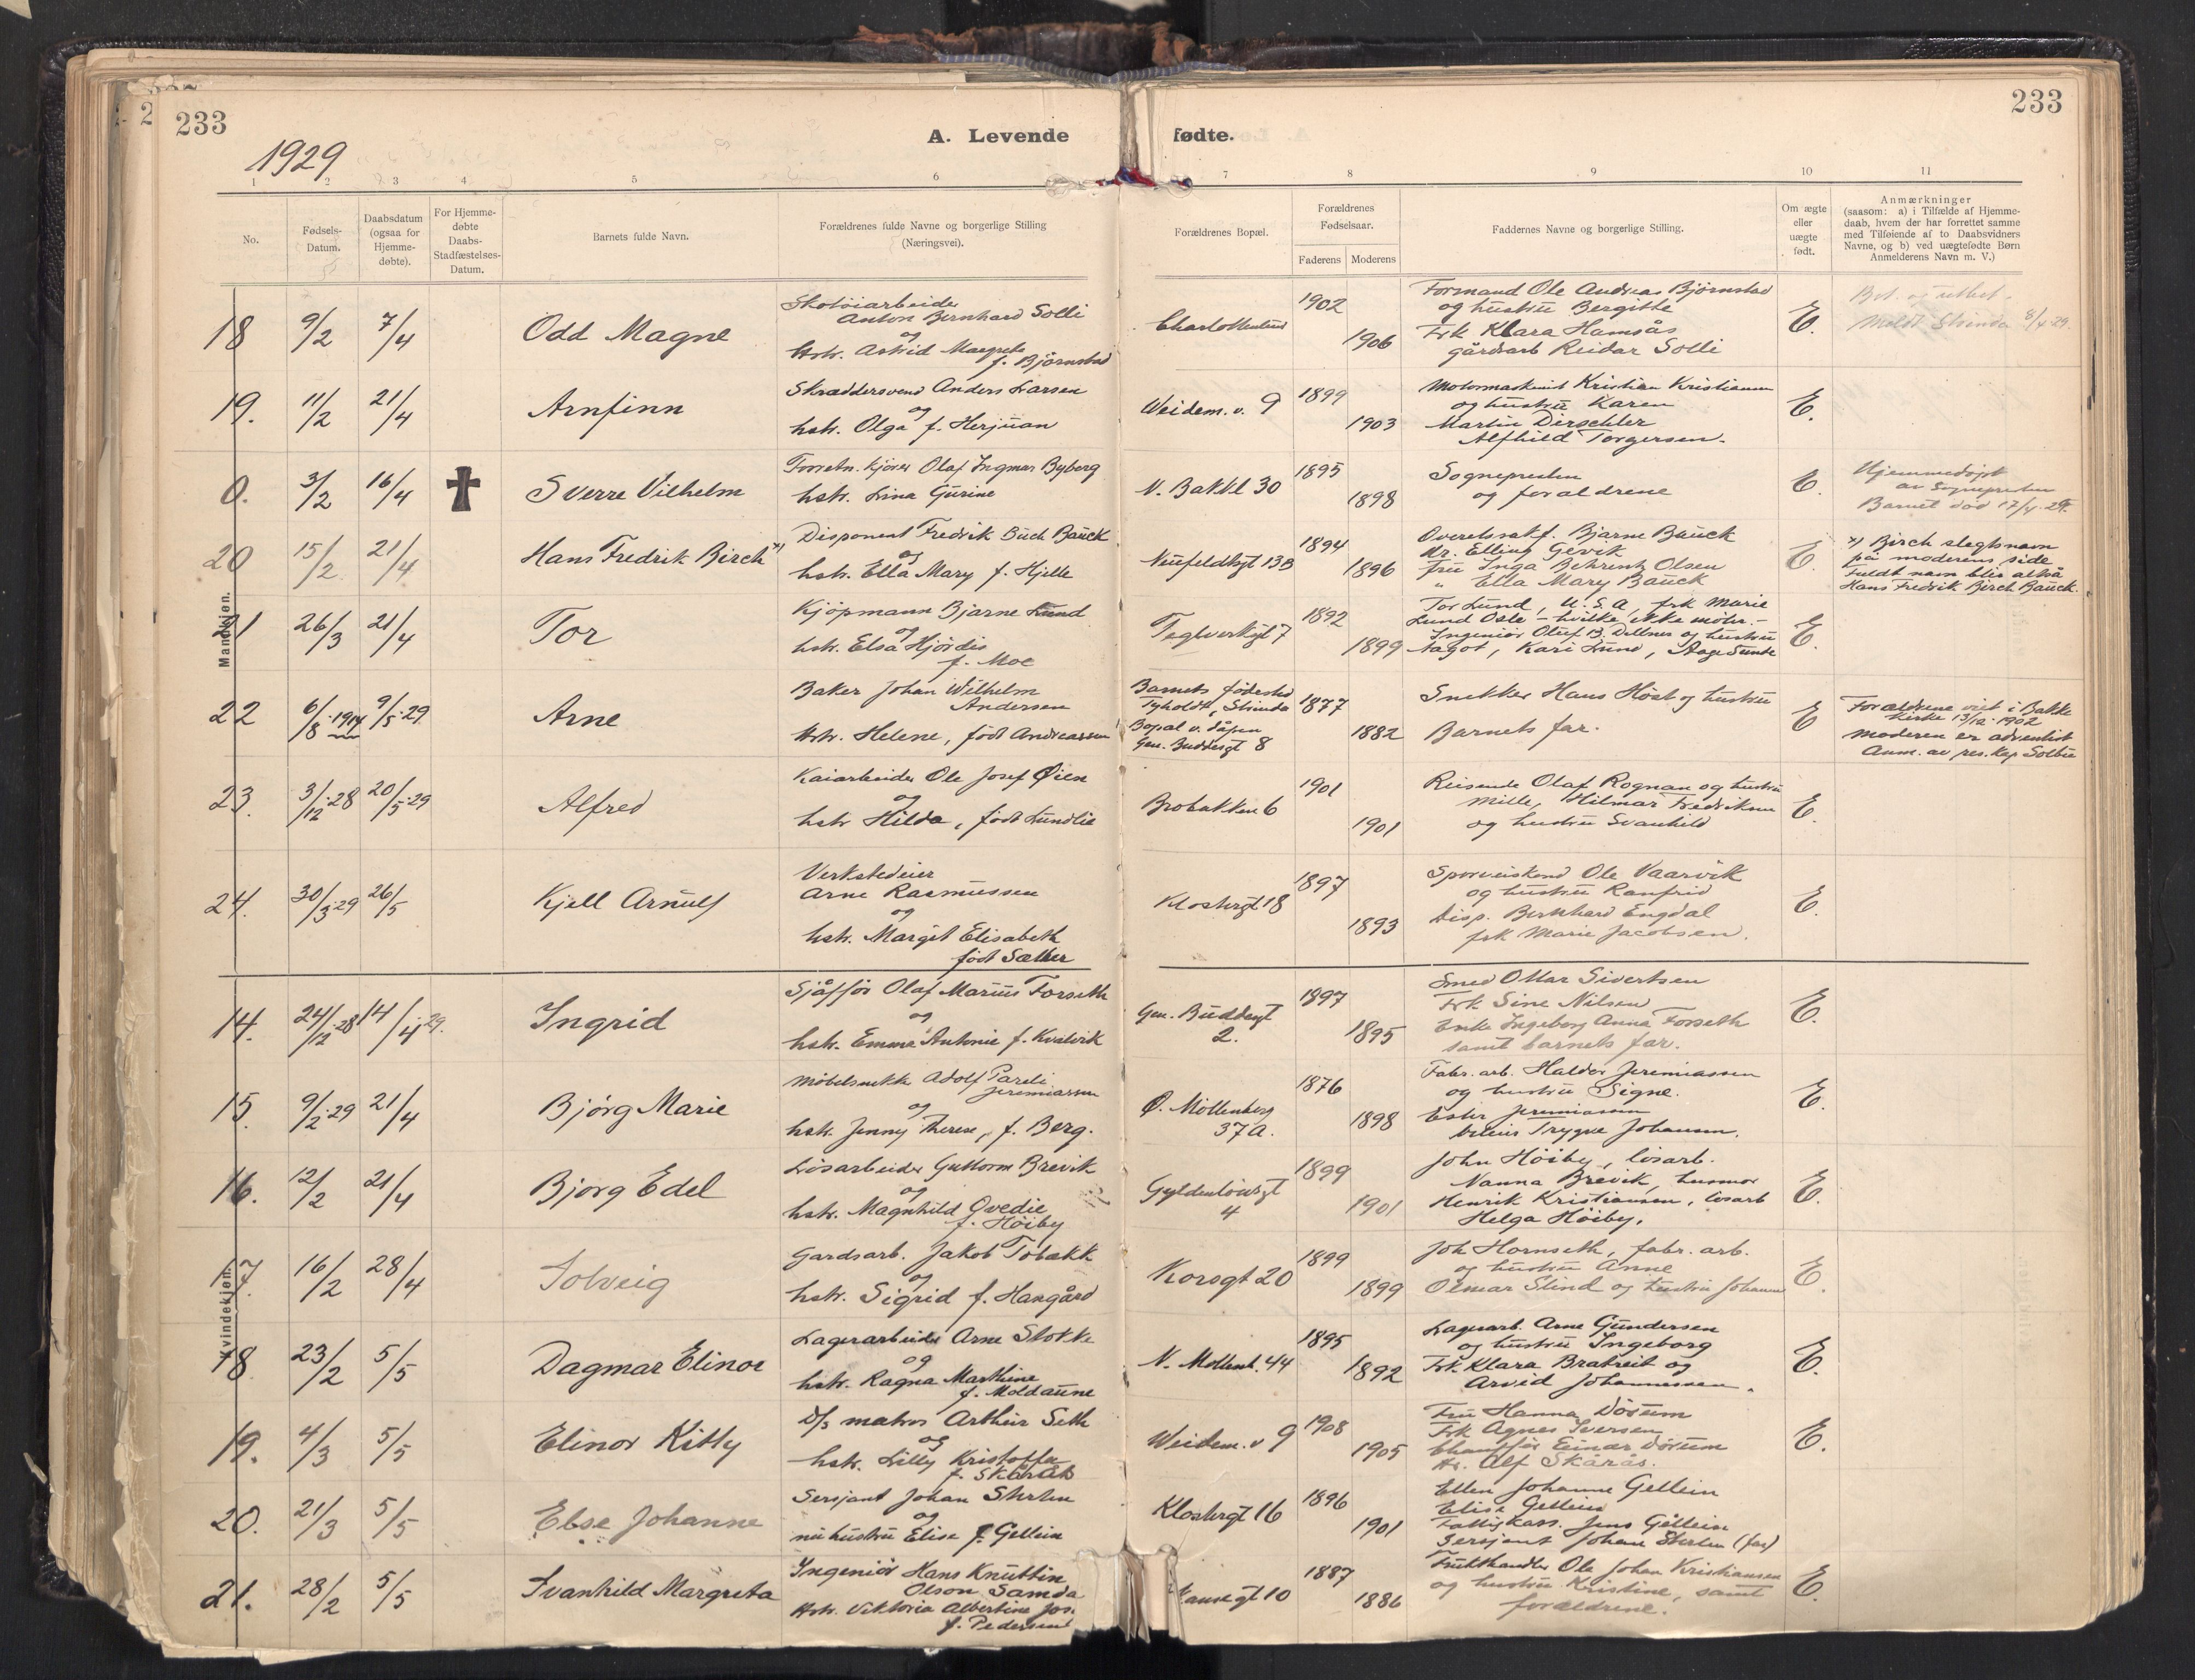 233
233
A. Levende fødte.
1929
1 2 3 4 5 6 7 8 9 10 11
No.
Fødsels-
Datum.
Daabsdatum
(ogsaa for
Hjemme-
døbte).
For Hjemme-
døbte
Daabs-
Stadfæstelses-
Datum.
Barnets fulde Navn.
Forældrenes fulde Navne og borgerlige Stilling
(Næringsvei).
Forældrenes Bopæl.
Forældrenes
Fødselsaar.
Faderens Moderens
Faddernes Navne og borgerlige Stilling.
Om ægte
eller
uægte
født.
Anmærkninger
(saasom: a) i Tilfælde af Hjemme-
daab, hvem der har forrettet samme
med Tilføiende af to Daabsvidners
Navne, og b) ved uægtefødte Børn
Anmelderens Navn m. V.)
Mandkjøn.
18 9/2 7/4 Odd Magne
Skotøiarbeider
Anton Bernhard Solli
og
hstr. Astrid Margrete
f. Bjørnstad
Charlottenlund
1902
1906
Formand Ole Andreas Bjørnstad
og hustru Bergitte
Frk Klara Hamsås
gårdsarb Reidar Solli
E.
Meldt Strinda 8/4 29.
19. 11/2 21/4 Arnfinn
Skræddersvend Anders Larsen
og
hstr. Olga f. Herjuan
Weidem. v. 9
1899
1903
Motormaskinist Kristian Kristiansen
og hustru Karen
Martin Dirschler
Alfhild Torgersen.
E.
0. 3/2 16/4 ✝ Sverre Vilhelm
Forretn. kjører Olaf Ingmar Byberg
hstr. Lina Gurine
N. Bakkl 30
1895
1898
Sognepresten
og foraldrene
E.
Hjemmedøpt
av Sognepresten
Barnet død 17/4. 29.
20 15/2 21/4 Hans Fredrik Birch x)
Disponent Fredrik Buch Bauck
og
hstr. Ella Mary f. Hjelle
Neufeldtgt 13B
1894
1896
Overetssakf. Bjarne Bauck
Hr. Elling Gevik
fru Inga Behrintz Olsen
" Ella Mary Bauck
E.
x) Birch slegtsnavn
på moderens side
Fuldt navn blir altså
Hans Fredrik Birch Bauck.
21 26/3 21/4 Tor
Kjöpmann Bjarne Lund
og
hstr. Elsa Hjördis
f. Moe
Teglverksgt 7
1892
1899
Tor Lund, U.S.A, frk Marie
Lund Oslo – hvilke ikke møter. –
Ingeniör Oluf B. Dellner og hustru
Aagot, Kari Lund, Aage Sunde
E.
22 6/8 1914 9/5 29 Arne
Baker Johan Wilhelm
Andersen
hstr. Helene, født Andreassen
Barnets fødested
Tyholdt, Strinda
Bopæl v. dåpen
Gen. Buddesgt 8
1877
1882
Snekker Hans Höst og hustru
Barnets far.
E
Forældrene viet i Bakke
Kirke 13/12. 1902
Moderen er adventist
Anm. av res. Kap Solbu
23. 3/12 28 20/5 29 Alfred
Kaiarbeider Ole Josef Øien
og
hstr Hilda, født Lundlie
Brobakken 6
1901
1901
Reisende Olaf Rognan og hustru
Mille, Hilmar Fredriksen
og hustru Svanhild
E.
24. 30/3 29 26/5 Kjell Arnulf
Verkstedeier
Arne Rasmussen
og
hstr. Margit Elisabeth
født Sæther
Klostergt 18
1897
1893
Sporveiskond Ole Vaarvik
og hustru Ranfrid
Disp. Bernhard Engdal
frk Marie Jacobsen.
E.
Kvindekjøn.
14. 24/12 28 14/4 29. Ingrid
Sjåffør Olaf Marius Forseth
og
hstr. Emma Antonie f. Kvalvik
Gen. Buddesgt
2.
1897
1895
Smed Ottar Sivertsen
Frk Sine Nilsen
Enke Ingeborg Anna Forseth
samt barnets far.
E.
15. 9/2 29 21/4 Bjórg Marie
Møbelsnekk Adolf Pareli
Jeremiassen
og
hstr. Jenny Therese, f. Berg.
Ø. Möllenberg
37A.
1876
1898
Fabr. arb. Haldor Jeremiassen
og hustru Signe.
Ester Jeremiassen
Trygve Johansen.
E.
16. 12/2 21/4 Bjorg Edel
Løsarbeider Guttorm Brevik
og
hstr. Magnhild Ovedie
f. Höiby
Gyldenløvesgt
4
1899
1901
John Höiby, løsarb.
Nanna Brevik, husmor
Henrik Kristiansen, løsarb
Helga Höiby.
E.
17. 16/2 28/4 Solveig
Gardsarb. Jakob Tobakk
og
hstr. Sigrid f. Hangård
Korsgt 20
1899
1899
Joh Hornseth, fabr. arb.
og hustru Anne
Olmar Stind og hustru Johanne
E.
18. 23/2 5/5 Dagmar Elinor
Lagerarbeider Arne Stokke
og
hstr. Ragna Marthine
f. Moldaune
N. Mollenb. 44
1895
1892
Lagerarb. Arne Gundersen
og hustru Ingeborg
Frk. Klara Bratreit og
Arvid Johannessen.
E.
19. 4/3 5/5 Elinor Kitty
D/s matros Arthur Seth
og
hstr. Lilly Kristoffa
f. Skårås
Weidem. v 9
1908
1905
Fru Hanna Dörum
Frk Agnes Iversen
Chauffør Einar Dörum
Hr. Alf Skårås.
E.
20. 21/3 5/5 Else Johanne
Sersjant Johan Stersen
og
nu hustru Elise f. Gellein
Klostergt 16
1896
1901
Ellen Johanne Gellein
Elise Gellein
Fattigkass. Jens Gellein
Sersjant Johan Stersen (far)
21. 28/2 5/5 Svanhild Margreta
Ingeniör Hans Knuttin
Olson Samda
Hstr. Viktoria Albertine Jos.
f. Pedersen
gt 10
1887
1886
Frukthandler Ole Johan Kristiansen
og hustru Kristine, samt
foraldrene.
E.